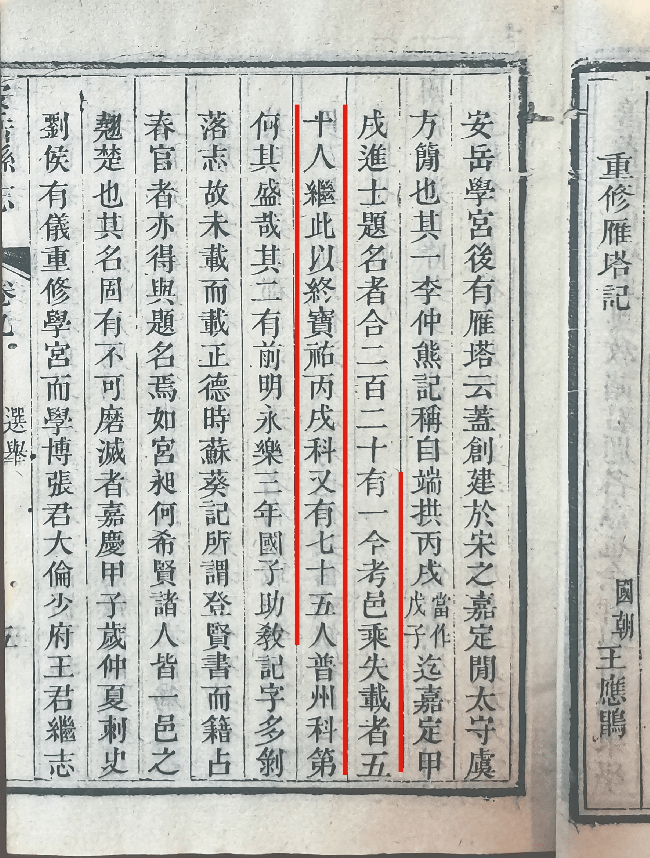 重修雁塔記
國朝 王應鵾
安岳學宮後有雁塔云蓋創建於宋之嘉定閒太守虞
方簡也其一李仲熊記稱自端拱丙戌當作戊子迄嘉定甲
戌進士題名者合二百二十有一今考邑乘失載者五
十人繼此以終寶祐丙戌科又有七十五人普州科第
何其盛哉其二有前明永樂三年國子助教記字多剝
落志故未載而載正德時蘇葵記所謂登賢書而籍占
春官者亦得與題名焉如宮昶何希賢諸人皆一邑之
翹楚也其名固有不可磨滅者嘉慶甲子歲仲夏刺史
劉侯有儀重修學宮而學博張君大倫少府王君繼志
縣志
卷九
選舉
五